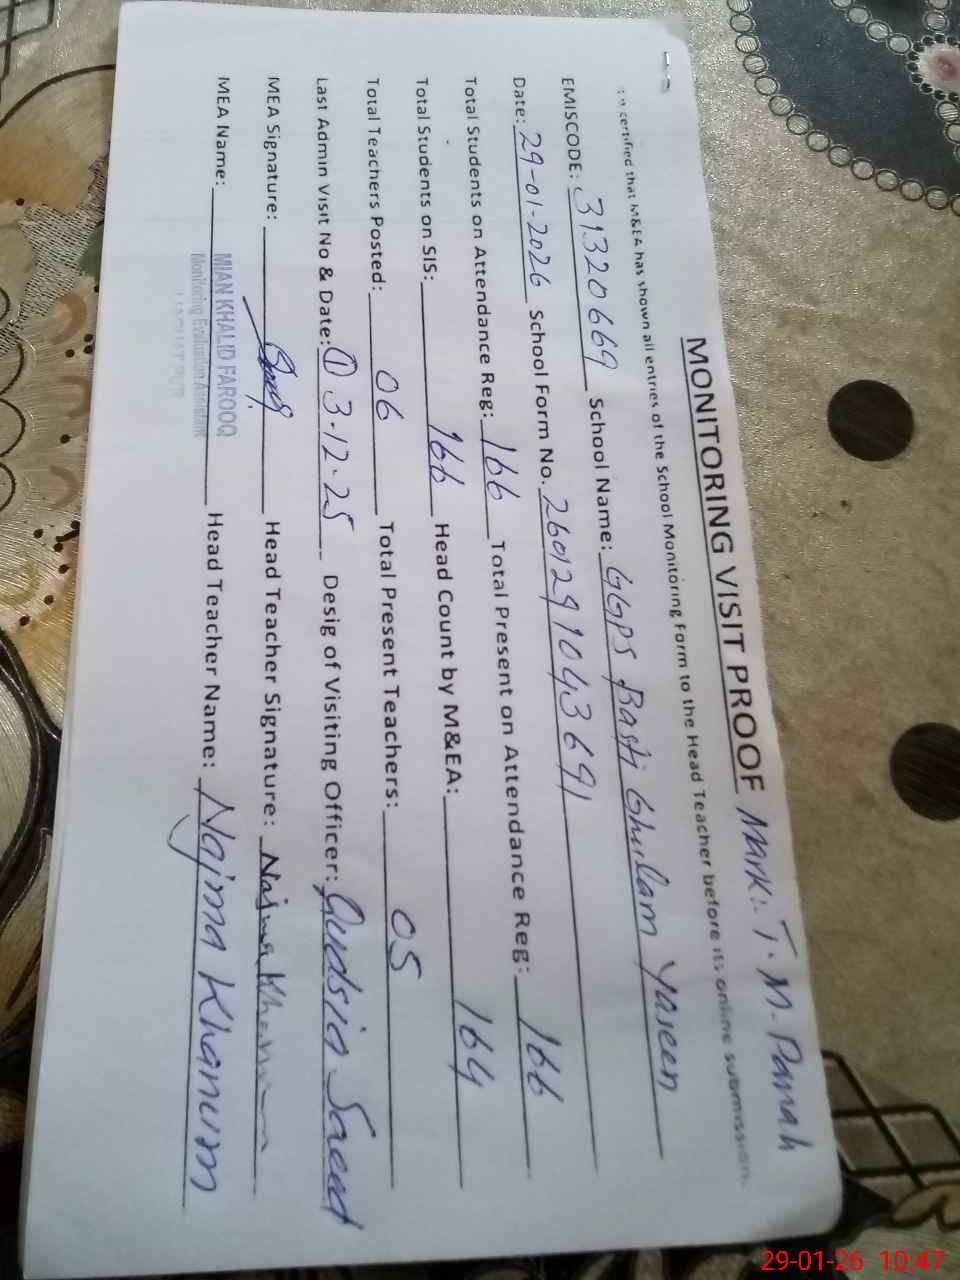 MONITORING VISIT PROOF Mark:. T. M. Panah
certified that M&EA has shown all entries of the School Monitoring Form to the Head Teacher before its online submission.
EMISCODE: 31320669 School Name: GGPS Basti Ghulam Yaseen
Date: 29-01-2026 School Form No. 260129104369
Total Students on Attendance Reg: 166 Total Present on Attendance Reg: 166
Total Students on SIS: 166 Head Count by M&EA: 164
Total Teachers Posted: 06 Total Present Teachers: 05
Last Admin Visit No & Date: ① 3-12-25 Desig of Visiting Officer: Qudsia Saeed
MEA Signature: Head Teacher Signature: Najma Khanum
MEA Name: MIAN KHALID FAROOQ Head Teacher Name: Najma Khanum
Monitoring Evaluation Assistant
29-01-26 10:47